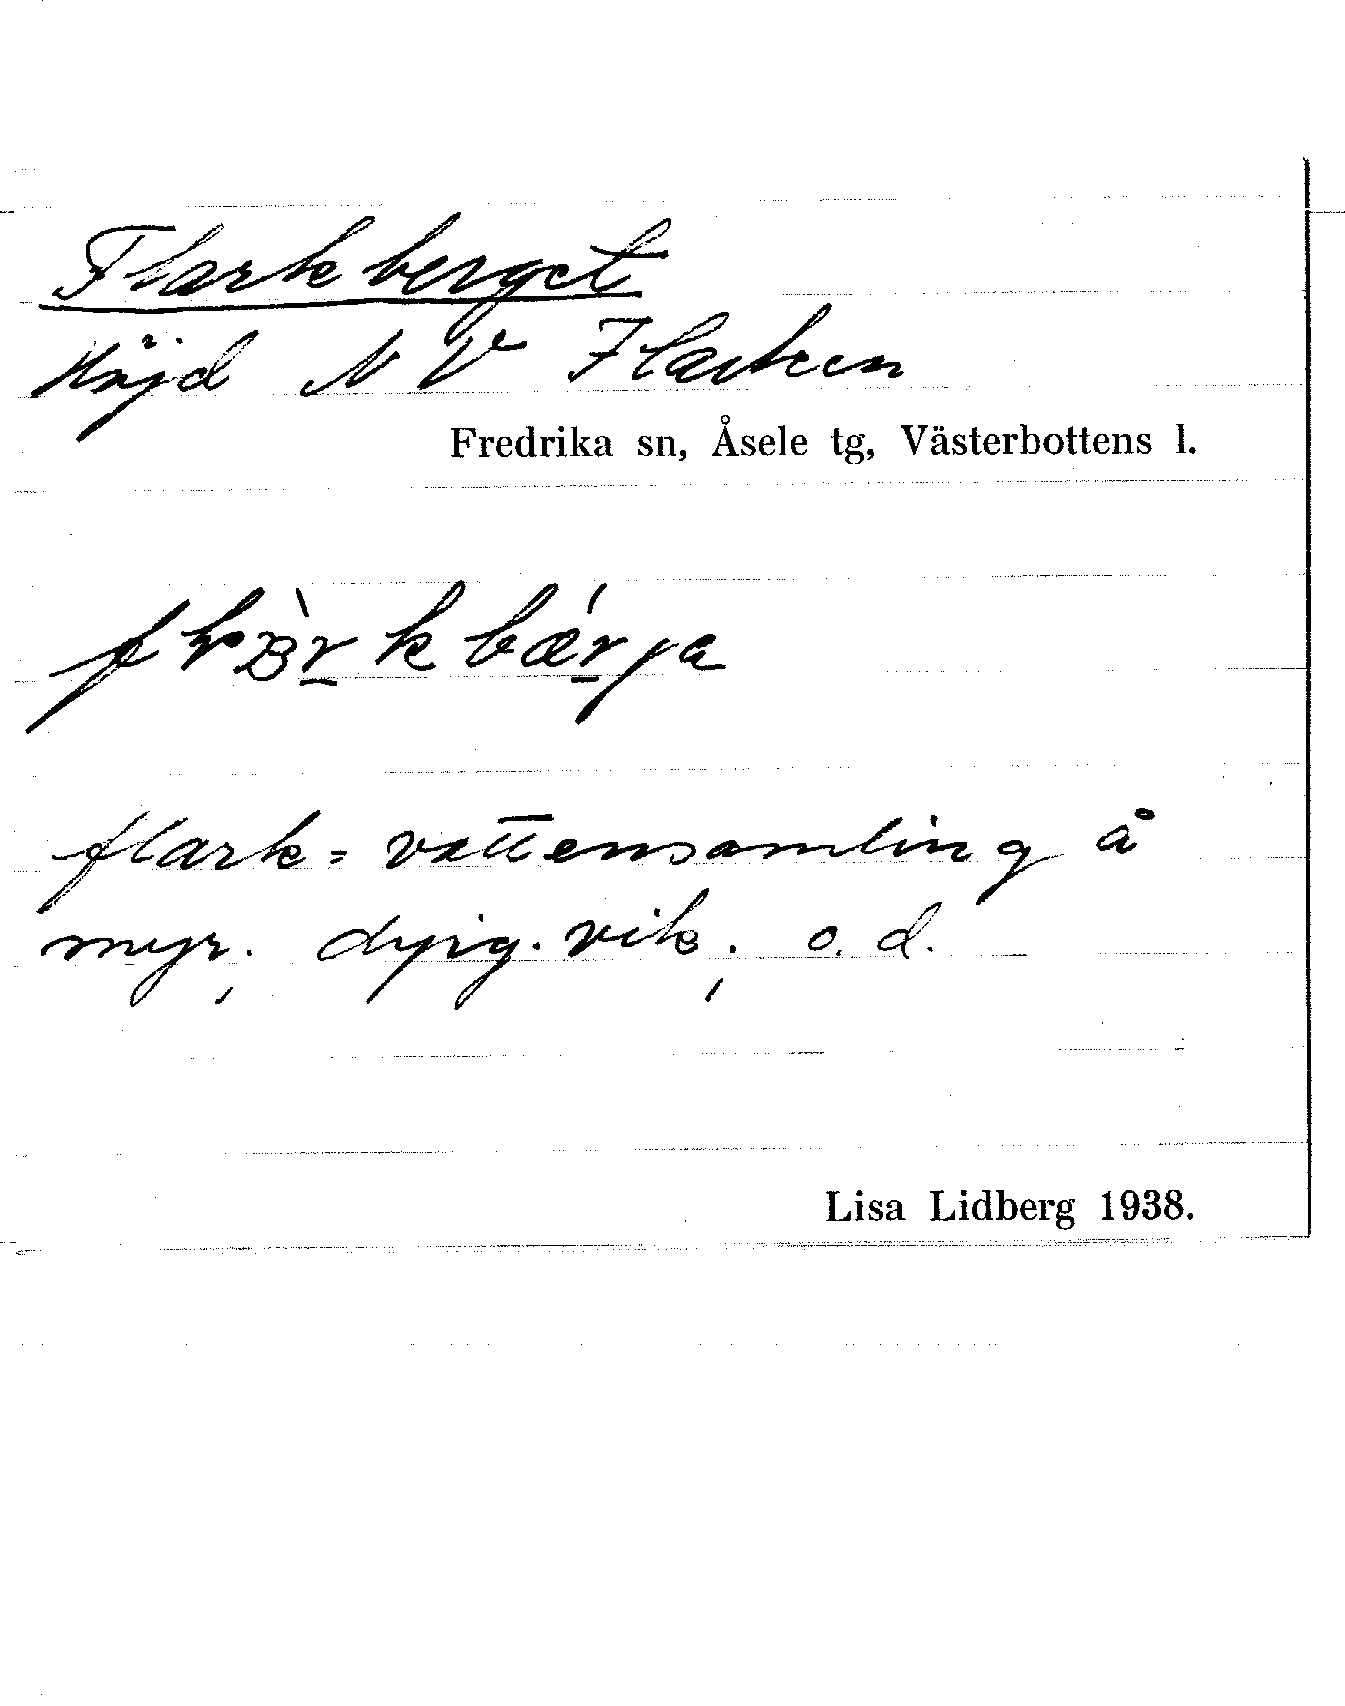 Flarkberget
Höjd NV Flarken
Fredrika sn, Åsele tg, Västerbottens l.
flark = vattensamling å
myr; dyig. vik; o. d.
Lisa Lidberg 1938.